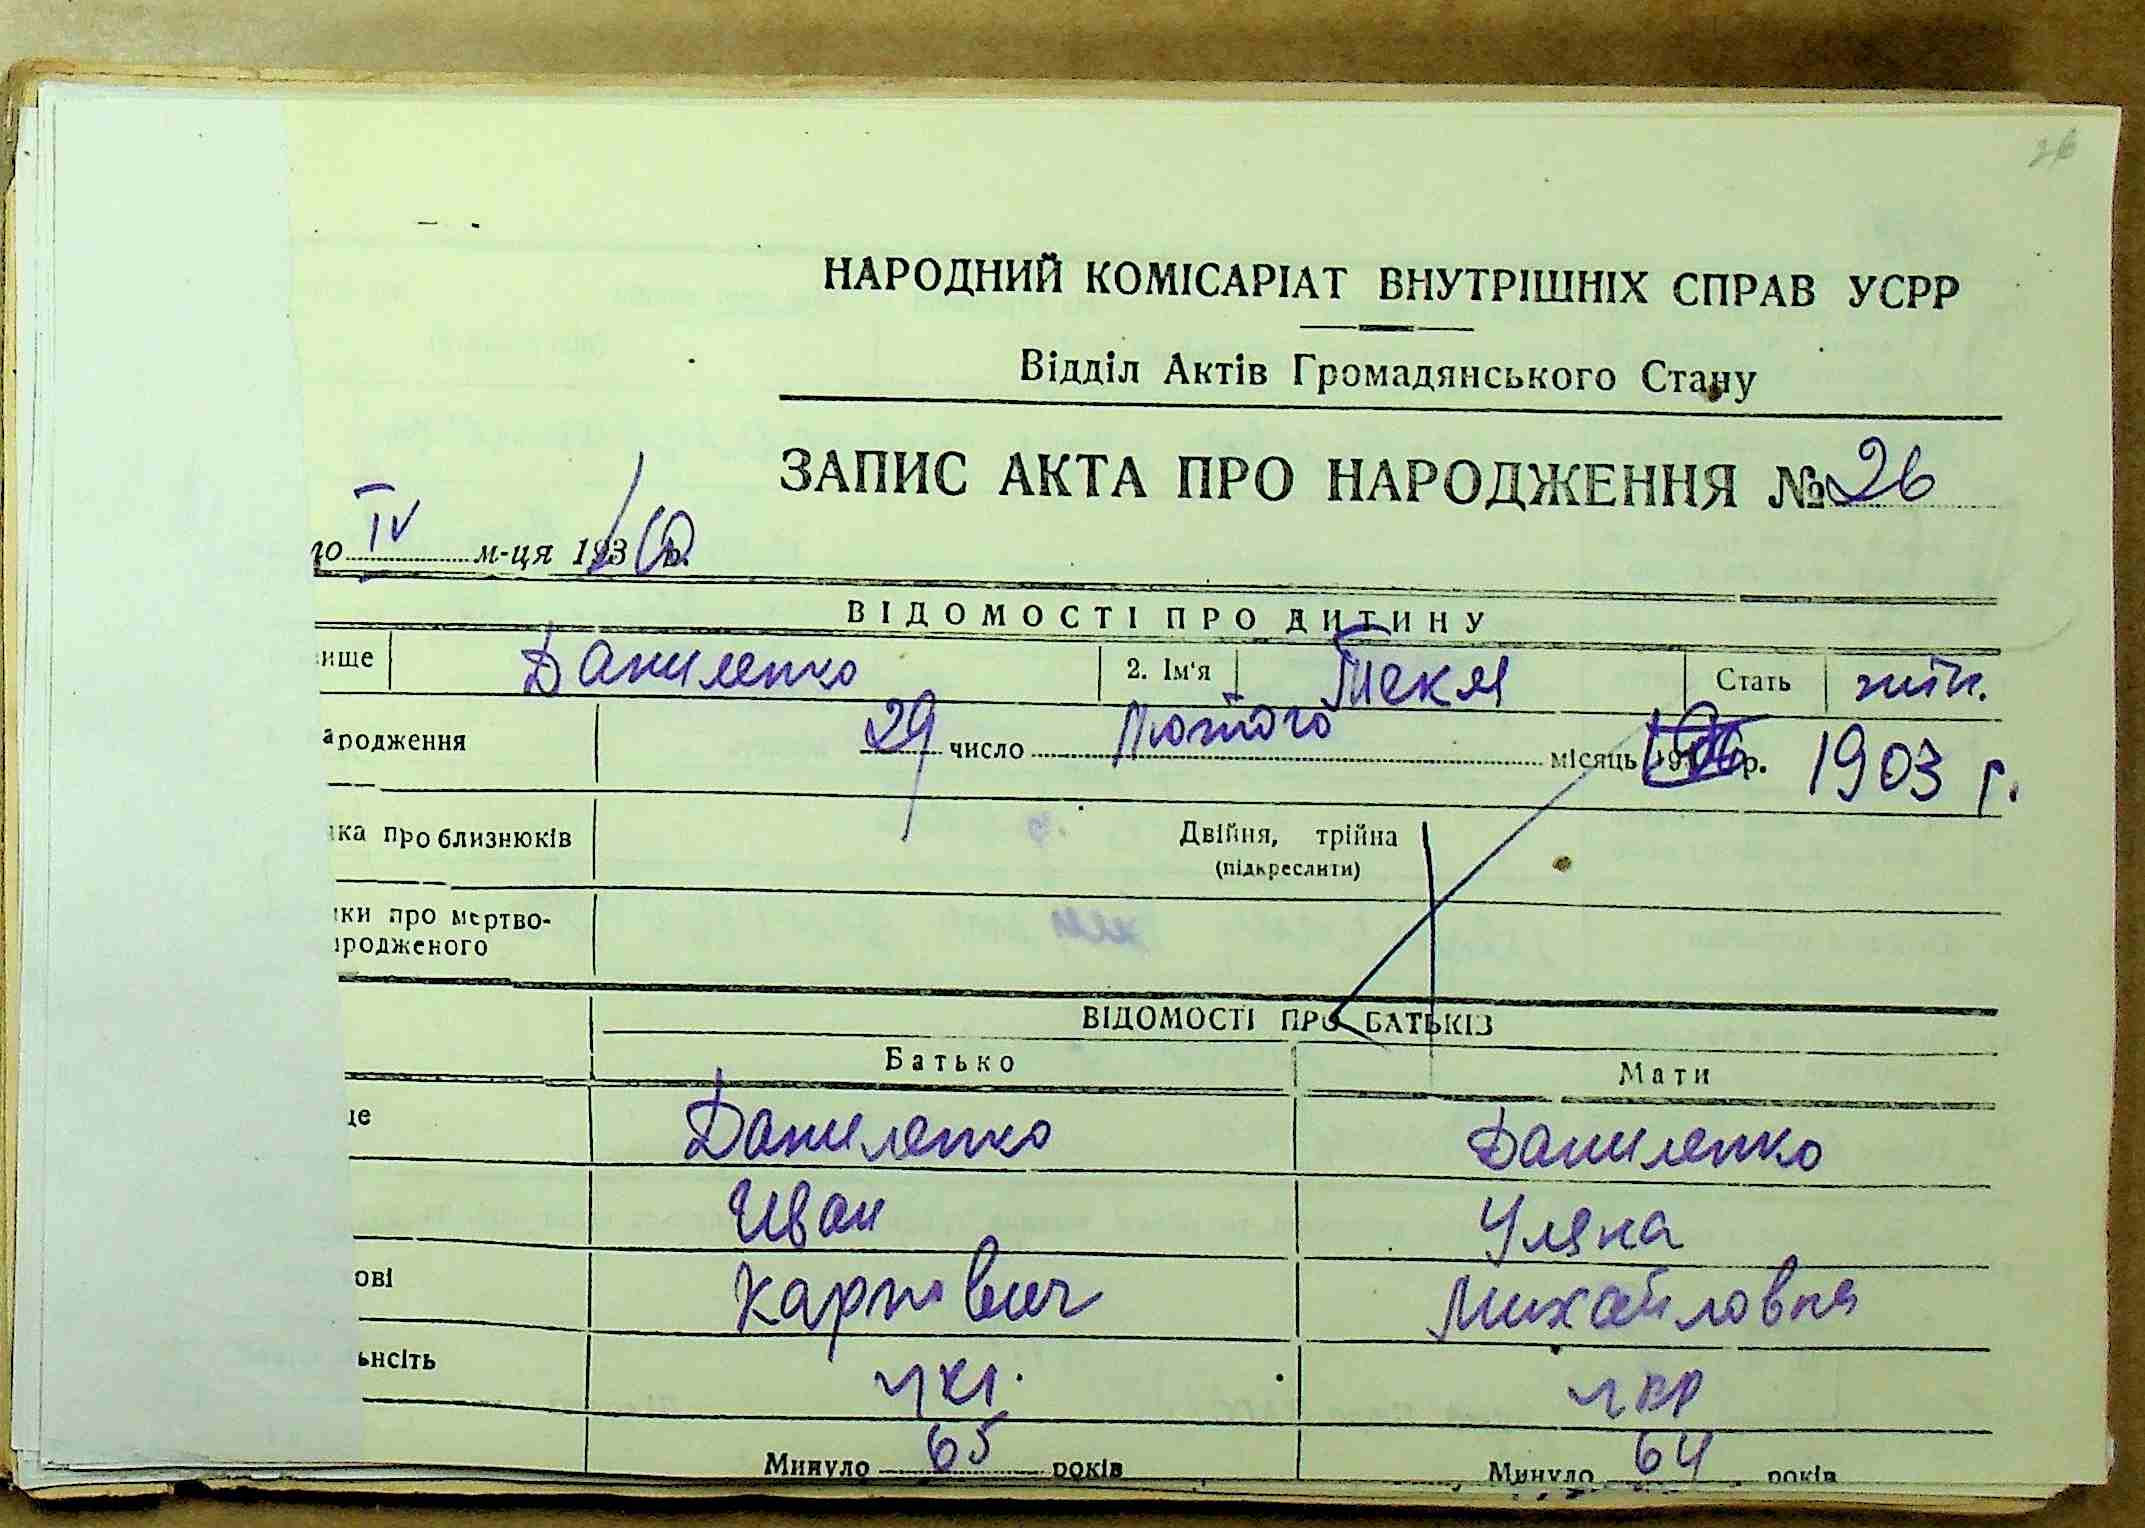 26
НАРОДНИЙ КОМІСАРІАТ ВНУТРІШНІХ СПРАВ УСРР
Відділ Актів Громадянського Стану
ЗАПИС АКТА ПРО НАРОДЖЕННЯ № 26
го IV м-ця 193
ВІДОМОСТІ ПРО ДИТИНУ
ище Даниленко 2. Ім'я Текля Стать жін.
ародження 29 число Лютого місяць р. 1903 г.
ка про близнюків Двійня, трійна
(підкреслити)
ки про мертво-
ародженого
ВІДОМОСТІ ПРО БАТЬКІВ
Батько Мати
це Даниленко Даниленко
Иван Уляна
ові Карпович Михайловна
ьнсіть укр. укр
Минуло 65 років Минуло 64 років